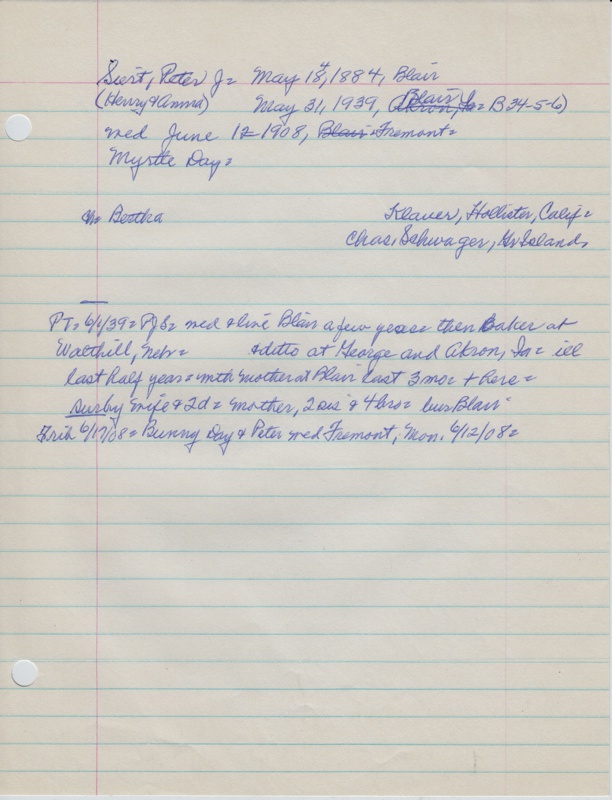 Siert, Peter J= May 14, 1884, Blair
(Henry & Anna) May 31, 1939, Akron, Ia= Blair B 34-5-6)
med June 12 1908, Blair Fremont=
Myrtle Day=
m Bertha Klauer, Hollister, Calif=
Chas. Schwager, Gr Island,
PT= 6/1/39= PJS= med & live Blair a few years= then baker at
Walthill, Nebr= & ditto at George and Akron, Ia= ill
last half year= with mother at Blair last 3 mos + here=
Surby wife & 2d= mother, 2 sis & 4 bro= bur Blair=
Trib 6/17/08= Bunny Day & Peter med Fremont, Mon. 6/12/08=